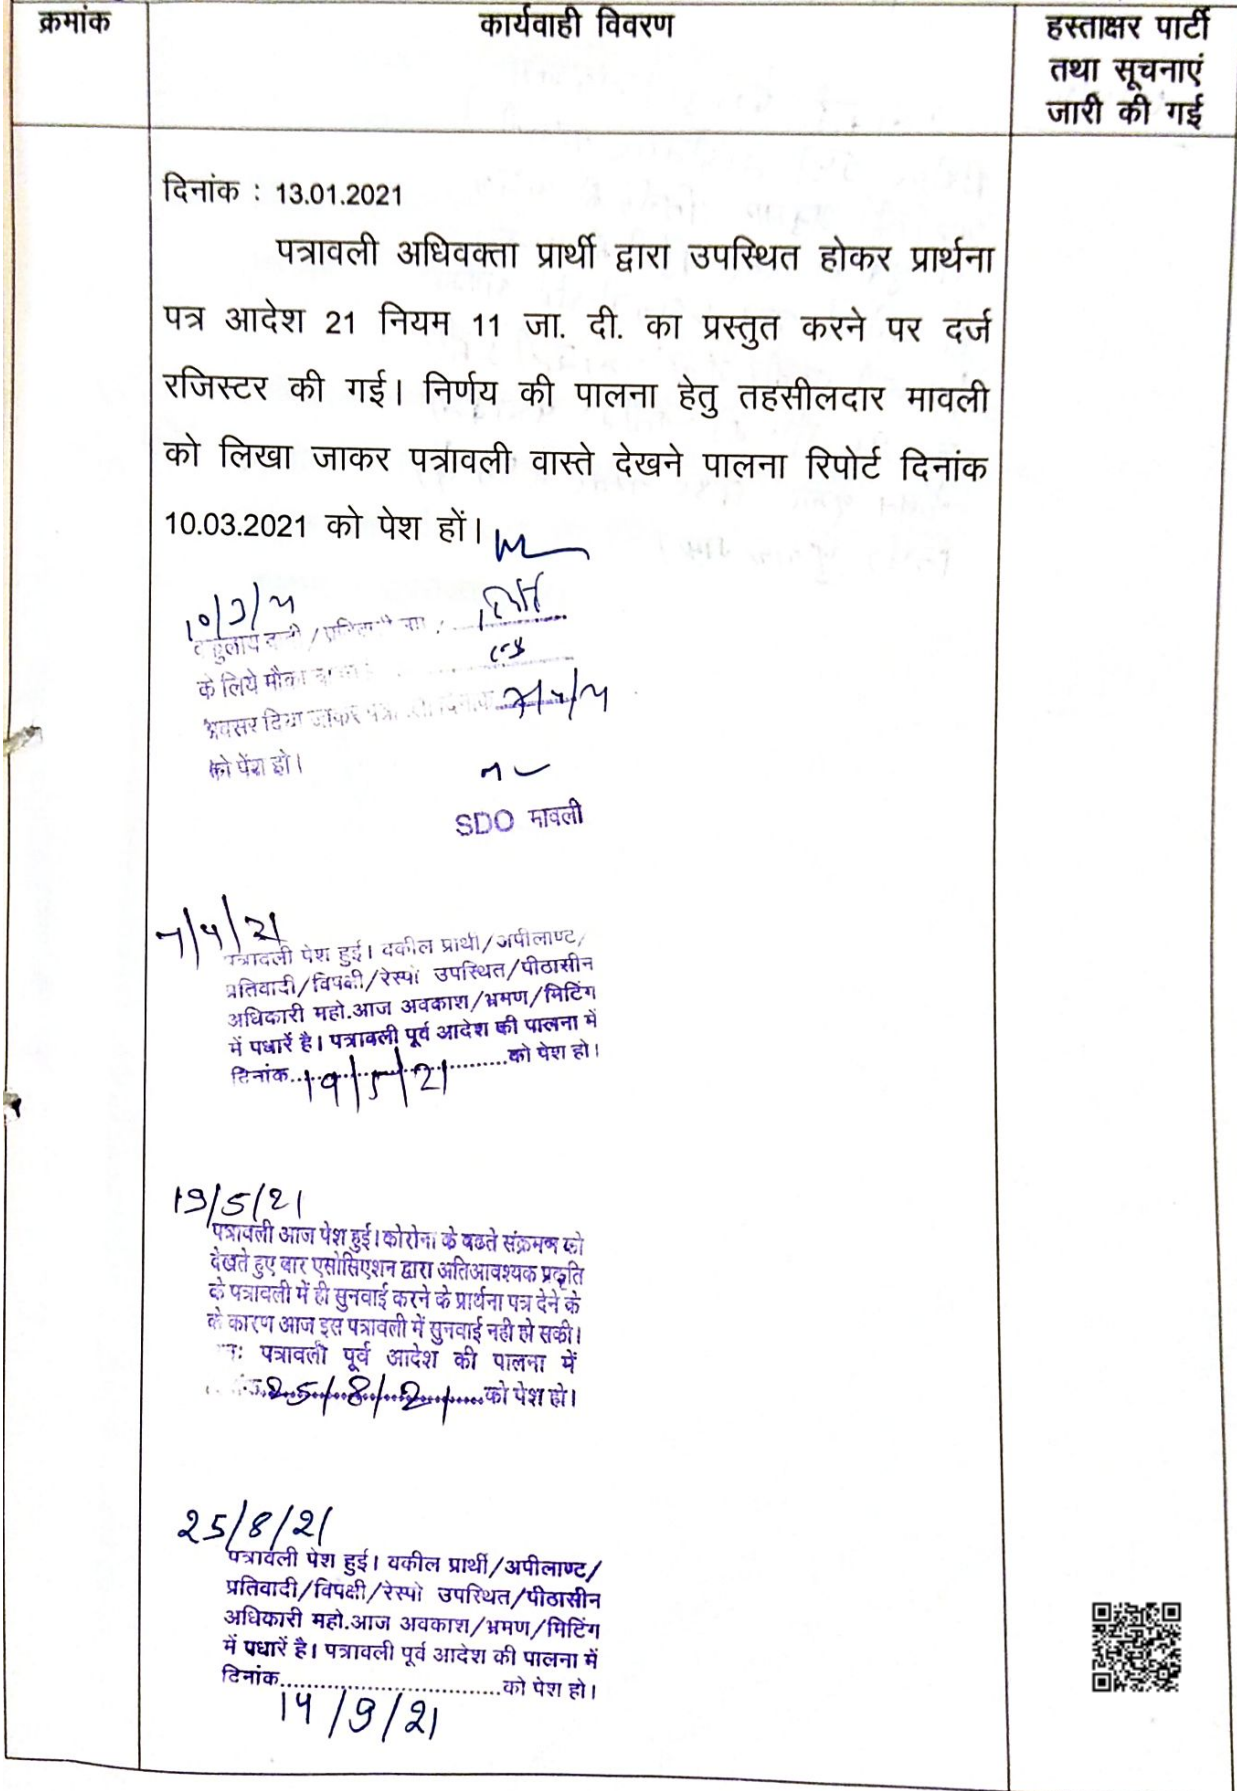 क्रमांक
कार्यवाही विवरण
हस्ताक्षर पार्टी
तथा सूचनाएं
जारी की गई
दिनांक : 13.01.2021
पत्रावली अधिवक्ता प्रार्थी द्वारा उपस्थित होकर प्रार्थना
पत्र आदेश 21 नियम 11 जा. दी. का प्रस्तुत करने पर दर्ज
रजिस्टर की गई। निर्णय की पालना हेतु तहसीलदार मावली
को लिखा जाकर पत्रावली वास्ते देखने पालना रिपोर्ट दिनांक
10.03.2021 को पेश हों।
के लिये मौका
अवसर दिया जाकर
को पेंश हो।
SDO मावली
7/4/21
पत्रावली पेश हुई। वकील प्रार्थी/अपीलाण्ट/
प्रतिवादी/विपक्षी/रेस्पो उपस्थित/पीठासीन
अधिकारी महो.आज अवकाश/भ्रमण/मिटिंग
में पधारें है। पत्रावली पूर्व आदेश की पालना में
दिनांक....19/5/21....को पेश हो।
19/5/21
पत्रावली आज पेश हुई। कोरोना के बढते संक्रमण को
देखते हुए बार एसोसिएशन द्वारा अतिआवश्यक प्रकृति
के पत्रावली में ही सुनवाई करने के प्रार्थना पत्र देने के
के कारण आज इस पत्रावली में सुनवाई नही हो सकी।
पत्रावली पूर्व आदेश की पालना में
25/8/21....को पेश हो।
25/8/21
पत्रावली पेश हुई। वकील प्रार्थी/अपीलाण्ट/
प्रतिवादी/विपक्षी/रेस्पो उपस्थित/पीठासीन
अधिकारी महो.आज अवकाश/भ्रमण/मिटिंग
में पधारें है। पत्रावली पूर्व आदेश की पालना में
दिनांक................................को पेश हो।
14/9/21